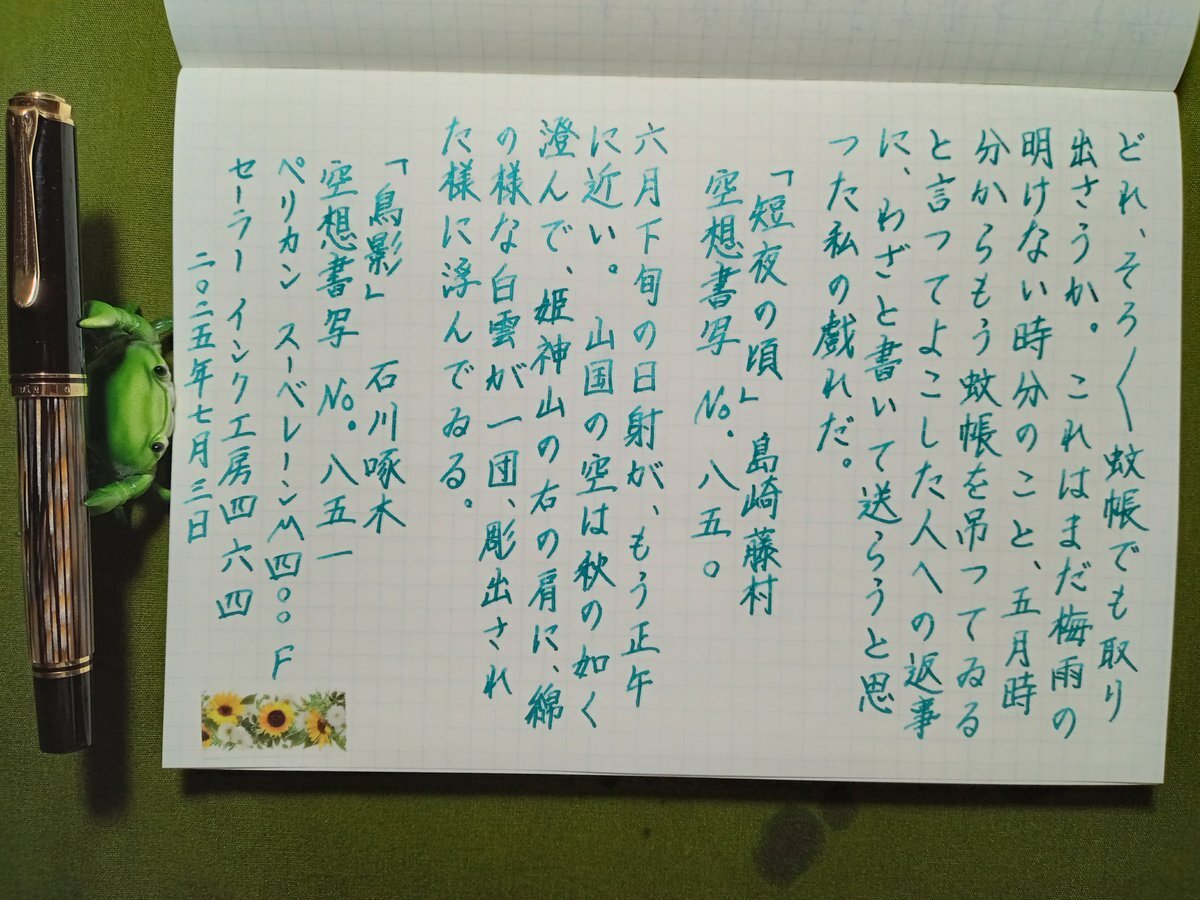 どれ、そろ〱蚊帳でも取り
出さうか。これはまだ梅雨の
明けない時分のこと、五月時
分からもう蚊帳を吊つてゐる
と言つてよこした人への返事
に、わざと書いて送らうと思
つた私の戯れだ。
「短夜の頃」 島崎藤村
空想書写 No.八五〇
六月下旬の日射が、もう正午
に近い。山国の空は秋の如く
澄んで、姫神山の右の肩に、綿
の様な白雲が一団、彫出され
た様に浮んでゐる。
「鳥影」 石川啄木
空想書写 No.八五一
ペリカン スーベレーンM四〇〇 F
セーラー インク工房四六四
二〇二五年七月三日